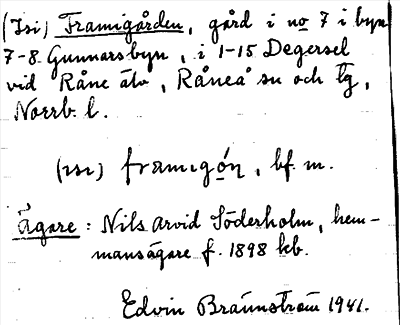 (Isi) Framigården, gård i no 7 i byn
7-8 Gunnarsbyn, i 1-15 Degersel
vid Råne älv, Råneå sn och tg,
Norrb. l.
(ısı) framıgón, bf. m.
Ägare: Nils Arvid Söderholm, hem-
mansägare f. 1898 kb.
Edvin Brännström 1941.